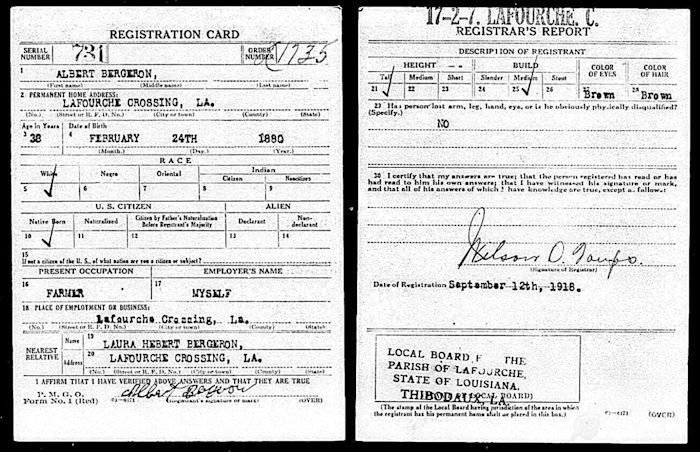 REGISTRATION CARD
SERIAL NUMBER 731 ORDER NUMBER 1735
1 ALBERT BERGERON,
(First name) (Middle name) (Last name)
2 PERMANENT HOME ADDRESS:
LAFOURCHE CROSSING, LA.
(No.) (Street or R. F. D. No.) (City or town) (County) (State)
Age in Years Date of Birth
3 38 4 FEBRUARY 24TH 1880
(Month.) (Day.) (Year.)
RACE
White Negro Oriental Indian
Citizen Noncitizen
5 6 7 8 9
U. S. CITIZEN ALIEN
Native Born Naturalized Citizen by Father's Naturalization Before Registrant's Majority Declarant Non-declarant
10 11 12 13 14
15
If not a citizen of the U. S., of what nation are you a citizen or subject?
PRESENT OCCUPATION EMPLOYER'S NAME
16 FARMER 17 MYSELF
18 PLACE OF EMPLOYMENT OR BUSINESS:
Lafourche Crossing, La.
(No.) (Street or R. F. D. No.) (City or town) (County) (State)
NEAREST RELATIVE Name 19 LAURA HEBERT BERGERON,
Address 20 LAFOURCHE CROSSING, LA.
(No.) (Street or R. F. D. No.) (City or town) (County) (State)
I AFFIRM THAT I HAVE VERIFIED ABOVE ANSWERS AND THAT THEY ARE TRUE
P. M. G. O.
Form No. 1 (Red) 03-6171 Albert (Registrant's signature or mark) (OVER)
17-2-7. LAFOURCHE. C.
REGISTRAR'S REPORT
DESCRIPTION OF REGISTRANT
HEIGHT BUILD COLOR OF EYES COLOR OF HAIR
Tall Medium Short Slender Medium Stout
21 22 23 24 25 26 27 Brown 28 Brown
29 Has person lost arm, leg, hand, eye, or is he obviously physically disqualified?
(Specify.)
NO
30 I certify that my answers are true; that the person registered has read or has
had read to him his own answers; that I have witnessed his signature or mark,
and that all of his answers of which I have knowledge are true, except as follows:
(Signature of Registrar)
Date of Registration September 12th, 1918.
LOCAL BOARD F THE
PARISH OF LAFOURCHE,
STATE OF LOUISIANA.
THIBODAUX, LA.
(The stamp of the Local Board having jurisdiction of the area in which
the registrant has his permanent home shall be placed in this box.)
03-6171 (OVER)